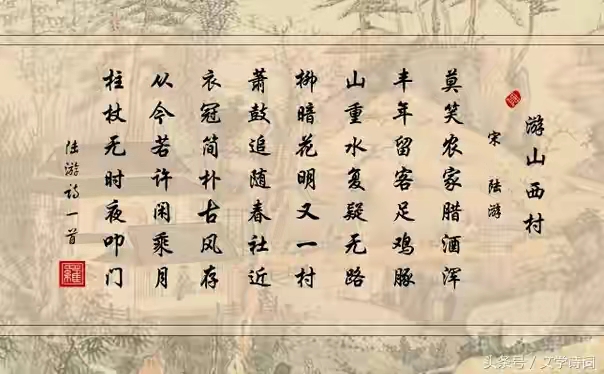 游山西村
宋 陆游
莫笑农家腊酒浑
丰年留客足鸡豚
山重水复疑无路
柳暗花明又一村
萧鼓追随春社近
衣冠简朴古风存
从今若许闲乘月
柱杖无时夜叩门
陆游诗一首
羅
头条号/文学诗词